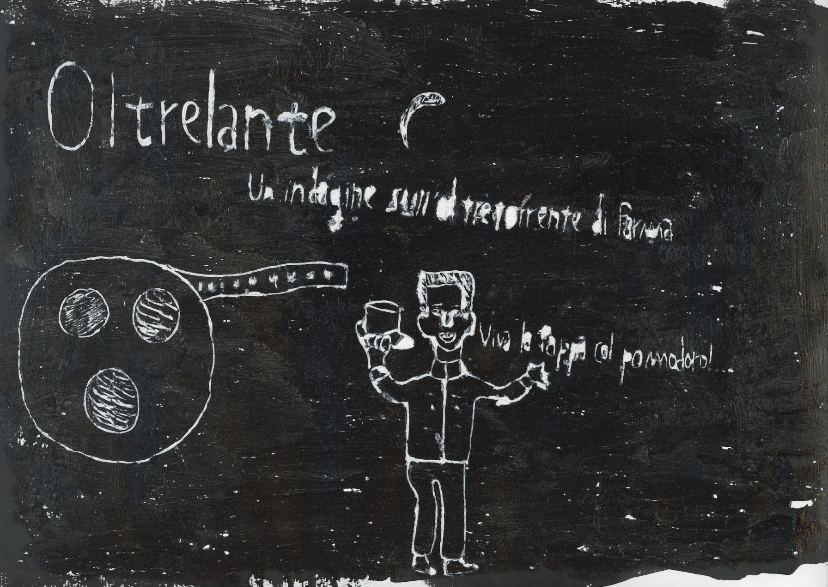 Oltrelante
Un indagine sull'oltretorrente di Parma
Viva la pappa col pomodoro!...